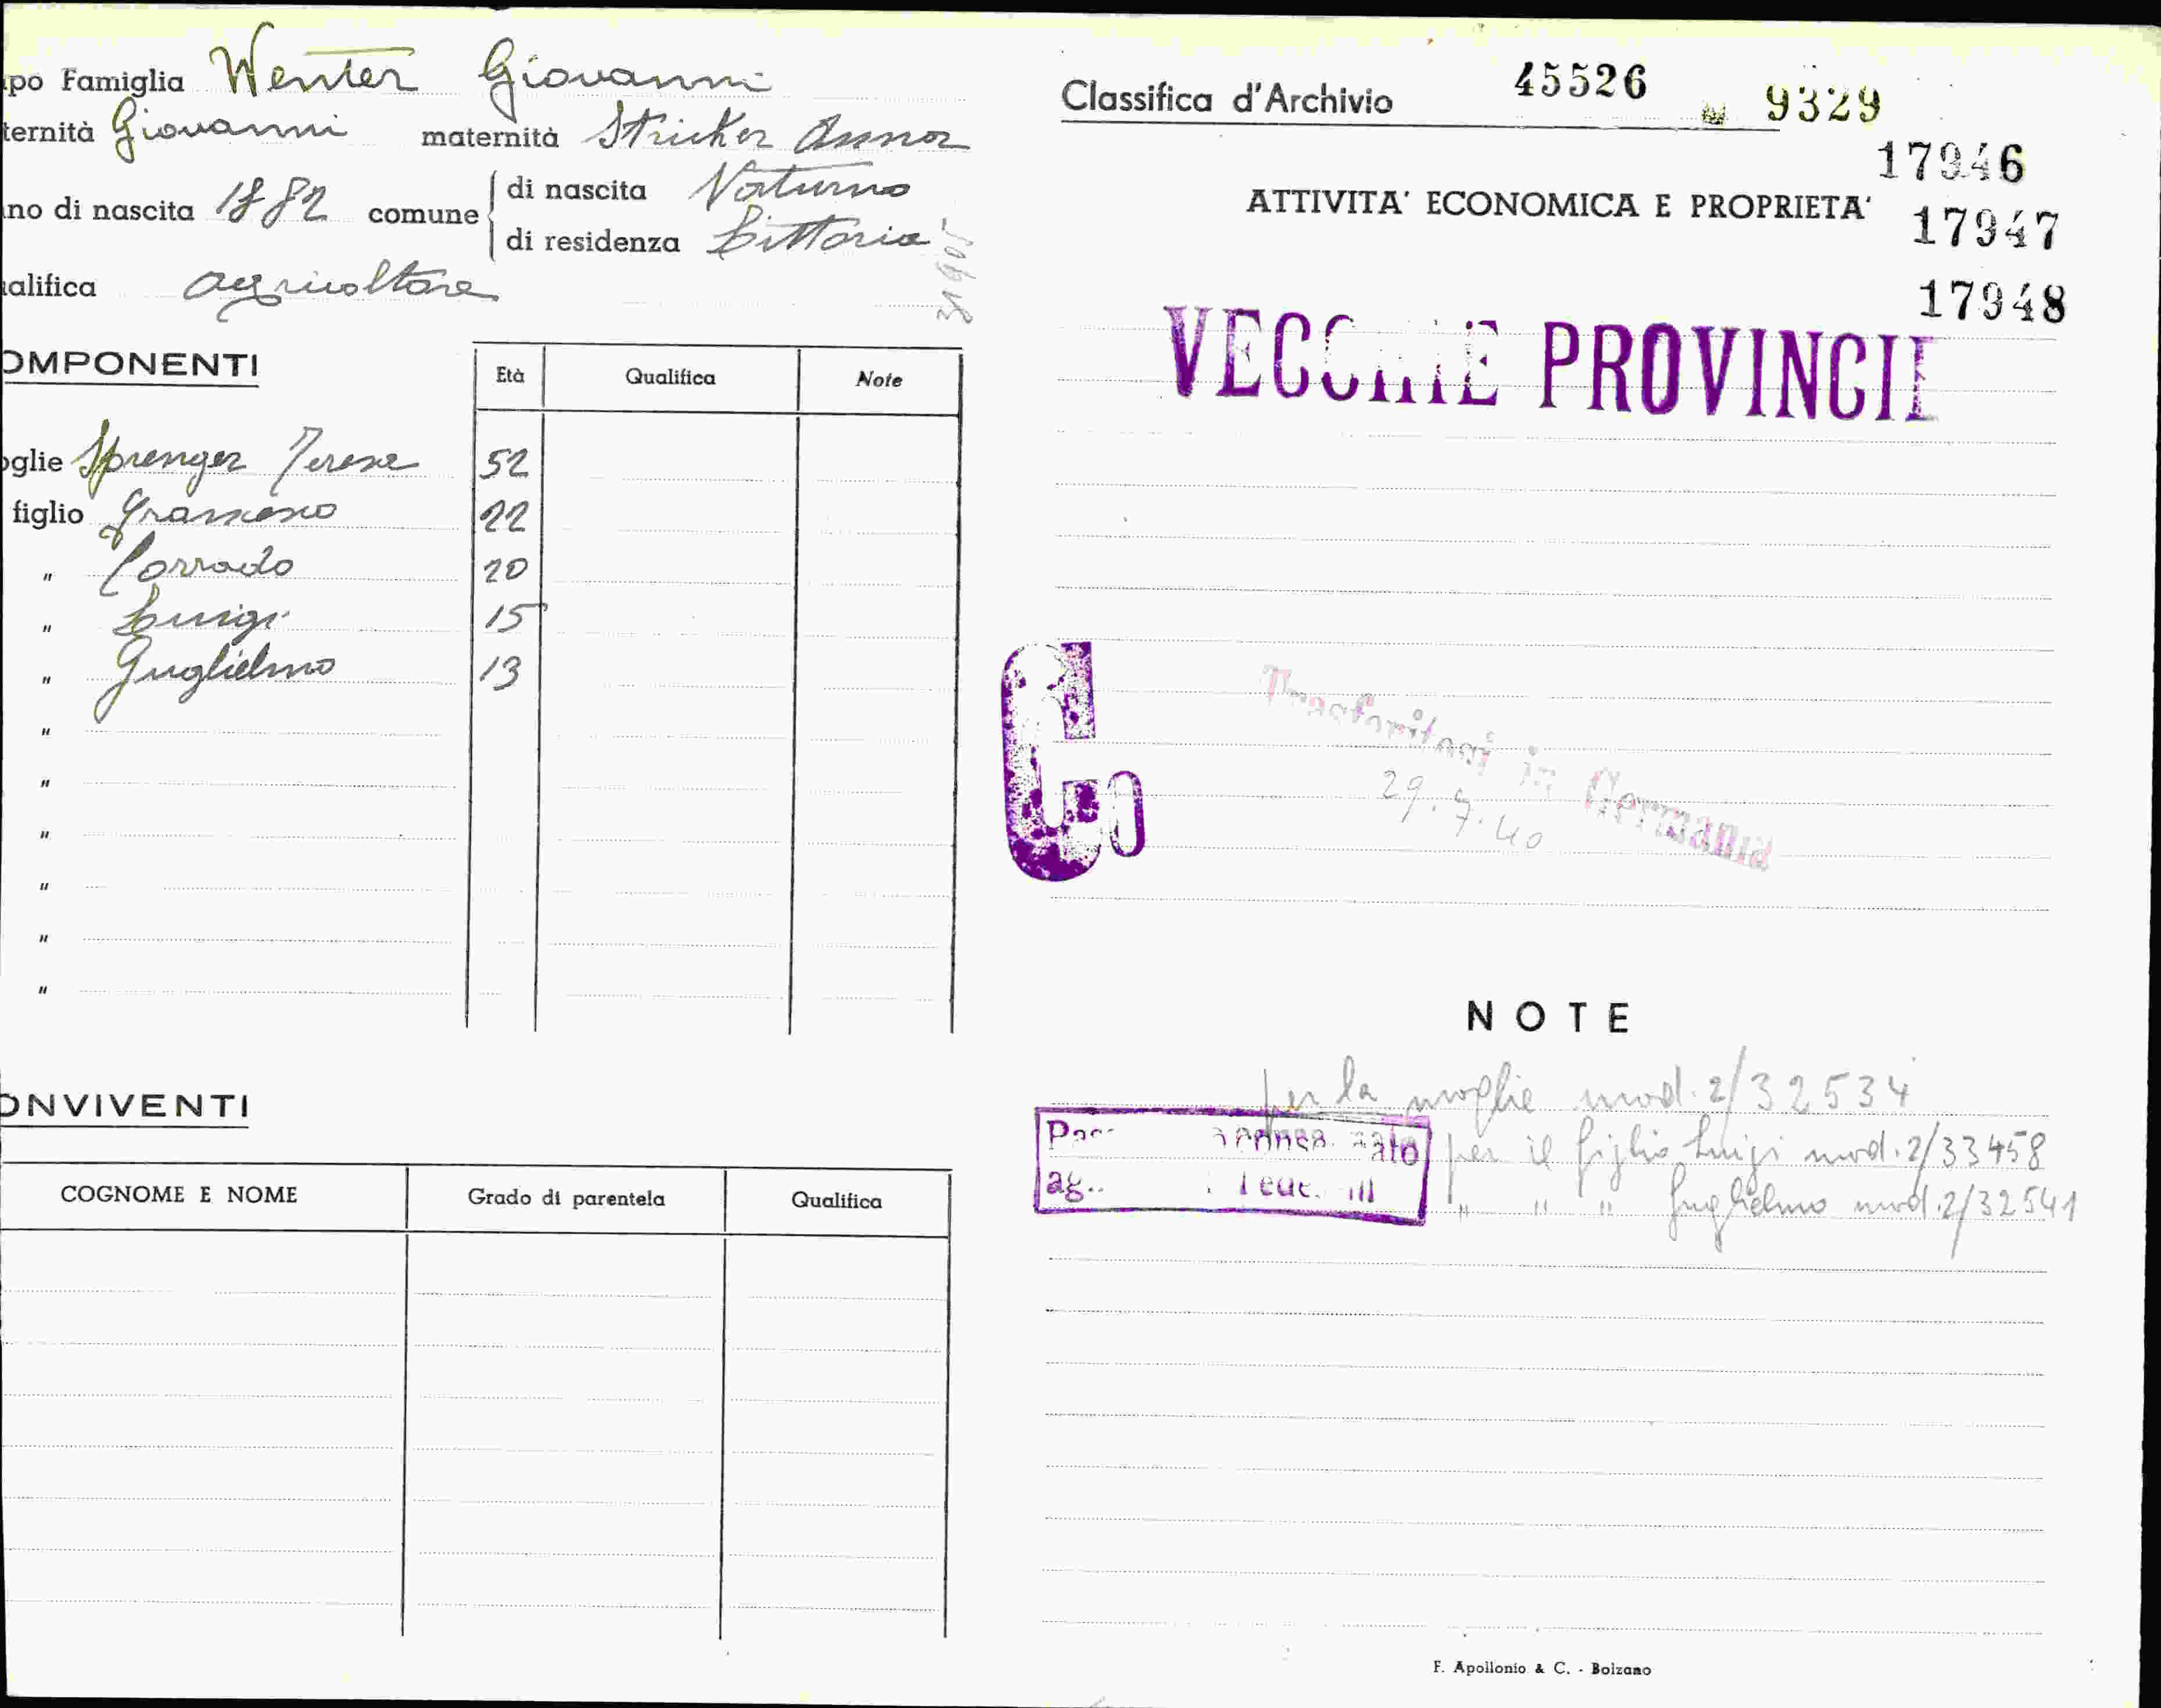 po Famiglia Wenter Giovanni
ternità Giovanni maternità Stricker Anna
no di nascita 1882 comune di nascita Naturno
di residenza Littoria
alifica agricoltore
31905
OMPONENTI
Età Qualifica Note
oglie Sprenger Teresa 52
figlio Francesco 22
" Corrado 20
" Luigi 15
" Guglielmo 13
"
"
"
"
"
"
ONVIVENTI
COGNOME E NOME Grado di parentela Qualifica
Classifica d'Archivio 45526 9329
17946
ATTIVITA' ECONOMICA E PROPRIETA' 17947
17948
VECCHIE PROVINCIE
Trasferitosi in Germania
29.9.40
NOTE
per la moglie mod. 2/32534
per il figlio Luigi mod. 2/33458
" " " Guglielmo mod. 2/32541
F. Apollonio & C. - Bolzano